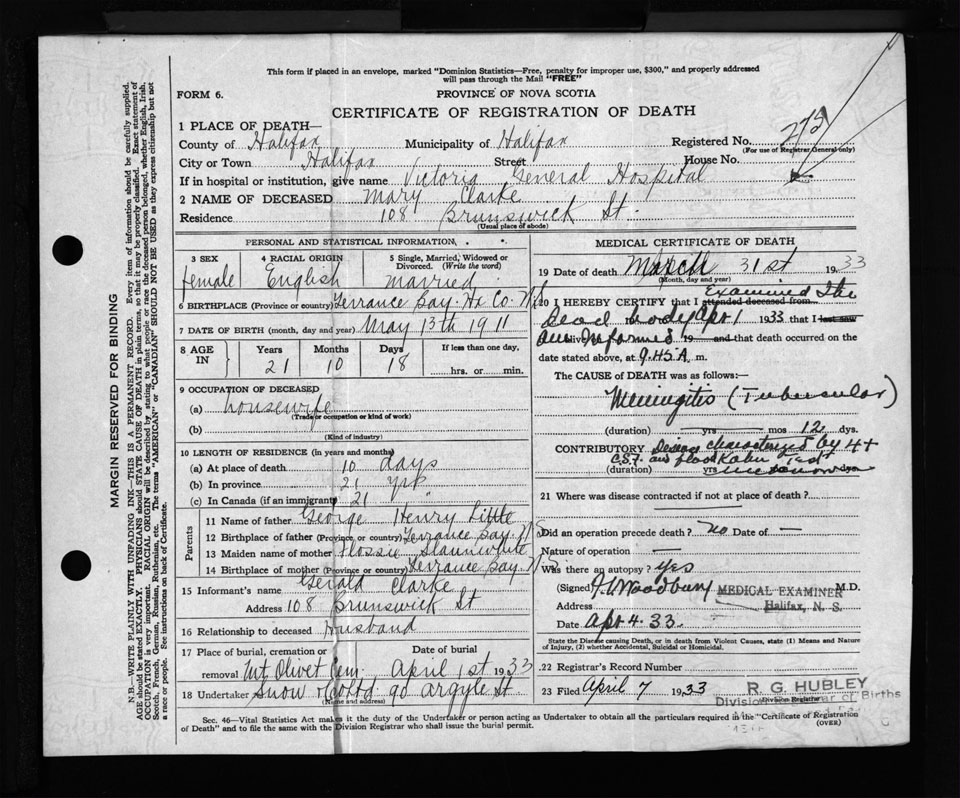 This form if placed in an envelope, marked "Dominion Statistics—Free, penalty for improper use, $300," and properly addressed
will pass through the Mail "FREE"
FORM 6.
PROVINCE OF NOVA SCOTIA
CERTIFICATE OF REGISTRATION OF DEATH
1 PLACE OF DEATH—
County of Halifax Municipality of Halifax Registered No.
(For use of Registrar General only)
City or Town Halifax Street House No.
If in hospital or institution, give name Victoria General Hospital
2 NAME OF DECEASED Mary Clarke
Residence 108 Brunswick St.
(Usual place of abode)
PERSONAL AND STATISTICAL INFORMATION
3 SEX 4 RACIAL ORIGIN 5 Single, Married, Widowed or
Divorced. (Write the word)
female English married
6 BIRTHPLACE (Province or country) Terrance Bay. Hx Co. N.S
7 DATE OF BIRTH (month, day and year) May 13th 1911
8 AGE IN Years Months Days If less than one day,
21 10 18 hrs. or min.
9 OCCUPATION OF DECEASED
(a) housewife
(Trade or occupation or kind of work)
(b)
(Kind of industry)
10 LENGTH OF RESIDENCE (in years and months)
(a) At place of death 10 days
(b) In province 21 yrs
(c) In Canada (if an immigrant) 21 "
Parents
11 Name of father George Henry Little
12 Birthplace of father (Province or country) Terrance Bay. N.S
13 Maiden name of mother Flossie Slaunwhite
14 Birthplace of mother (Province or country) Terrance Bay. N.S
15 Informant's name Gerald Clarke
Address 108 Brunswick St
16 Relationship to deceased Husband
17 Place of burial, cremation or Date of burial
removal Mt Olivet Cem. April 1st 1933
18 Undertaker Snow & Co Ltd 90 Argyle St
(Name and address)
MEDICAL CERTIFICATE OF DEATH
19 Date of death March 31st 1933
(Month, day and year)
20 I HEREBY CERTIFY that I attended deceased from Examined the
Dead body Apr 1 1933 that I last saw
alive 19 and that death occurred on
date stated above, at 9.45 A. m.
The CAUSE of DEATH was as follows:
Meningitis (Tubercular)
(duration) yrs mos 12 dys.
CONTRIBUTORY Disease characterized by 4+
C.S.F. and blood Kahn Test
(duration) yrs unknown dys
21 Where was disease contracted if not at place of death?
Did an operation precede death? no Date of —
Nature of operation —
Was there an autopsy? Yes
(Signed) Woodbury MEDICAL EXAMINER M.D.
Address Halifax, N. S.
Date Apr 4. 33.
State the Disease causing Death, or in death from Violent Causes, state (1) Means and Nature
of Injury, (2) whether Accidental, Suicidal or Homicidal.
22 Registrar's Record Number
23 Filed April 7 1933 R G HUBLEY
Division Registrar
Division Registrar of Births
Sec. 46—Vital Statistics Act makes it the duty of the Undertaker or person acting as Undertaker to obtain all the particulars required in the "Certificate of Registration
of Death" and to file the same with the Division Registrar who shall issue the burial permit.
(OVER)
MARGIN RESERVED FOR BINDING
N.B.—WRITE PLAINLY WITH UNFADING INK—THIS IS A PERMANENT RECORD. Every item of information should be carefully supplied.
AGE should be stated EXACTLY. PHYSICIANS should STATE CAUSE OF DEATH in plain terms, so that it may be properly classified. Exact statement of
OCCUPATION is very important. RACIAL ORIGIN will be described by stating to what people or race the deceased person belonged, whether English, Irish,
Scotch, French, German, Russian, Ruthenian, etc. The terms "AMERICAN" or "CANADIAN" SHOULD NOT BE USED as they express citizenship but not
a race or people. See instructions on back of Certificate.